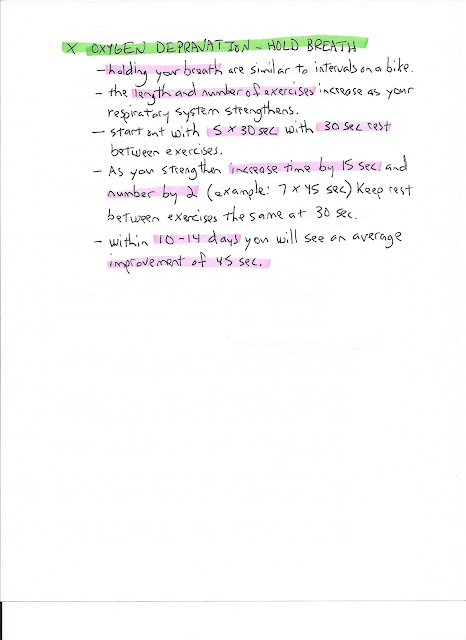 X OXYGEN DEPRAVATION - HOLD BREATH
- holding your breath are similar to intervals on a bike.
- the length and number of exercises increase as your
respiratory system strengthens.
- start out with 5 x 30 sec with 30 sec rest
between exercises.
- As you strengthen increase time by 15 sec and
number by 2 (example: 7 x 45 sec) Keep rest
between exercises the same at 30 sec.
- within 10-14 days you will see an average
improvement of 45 sec.